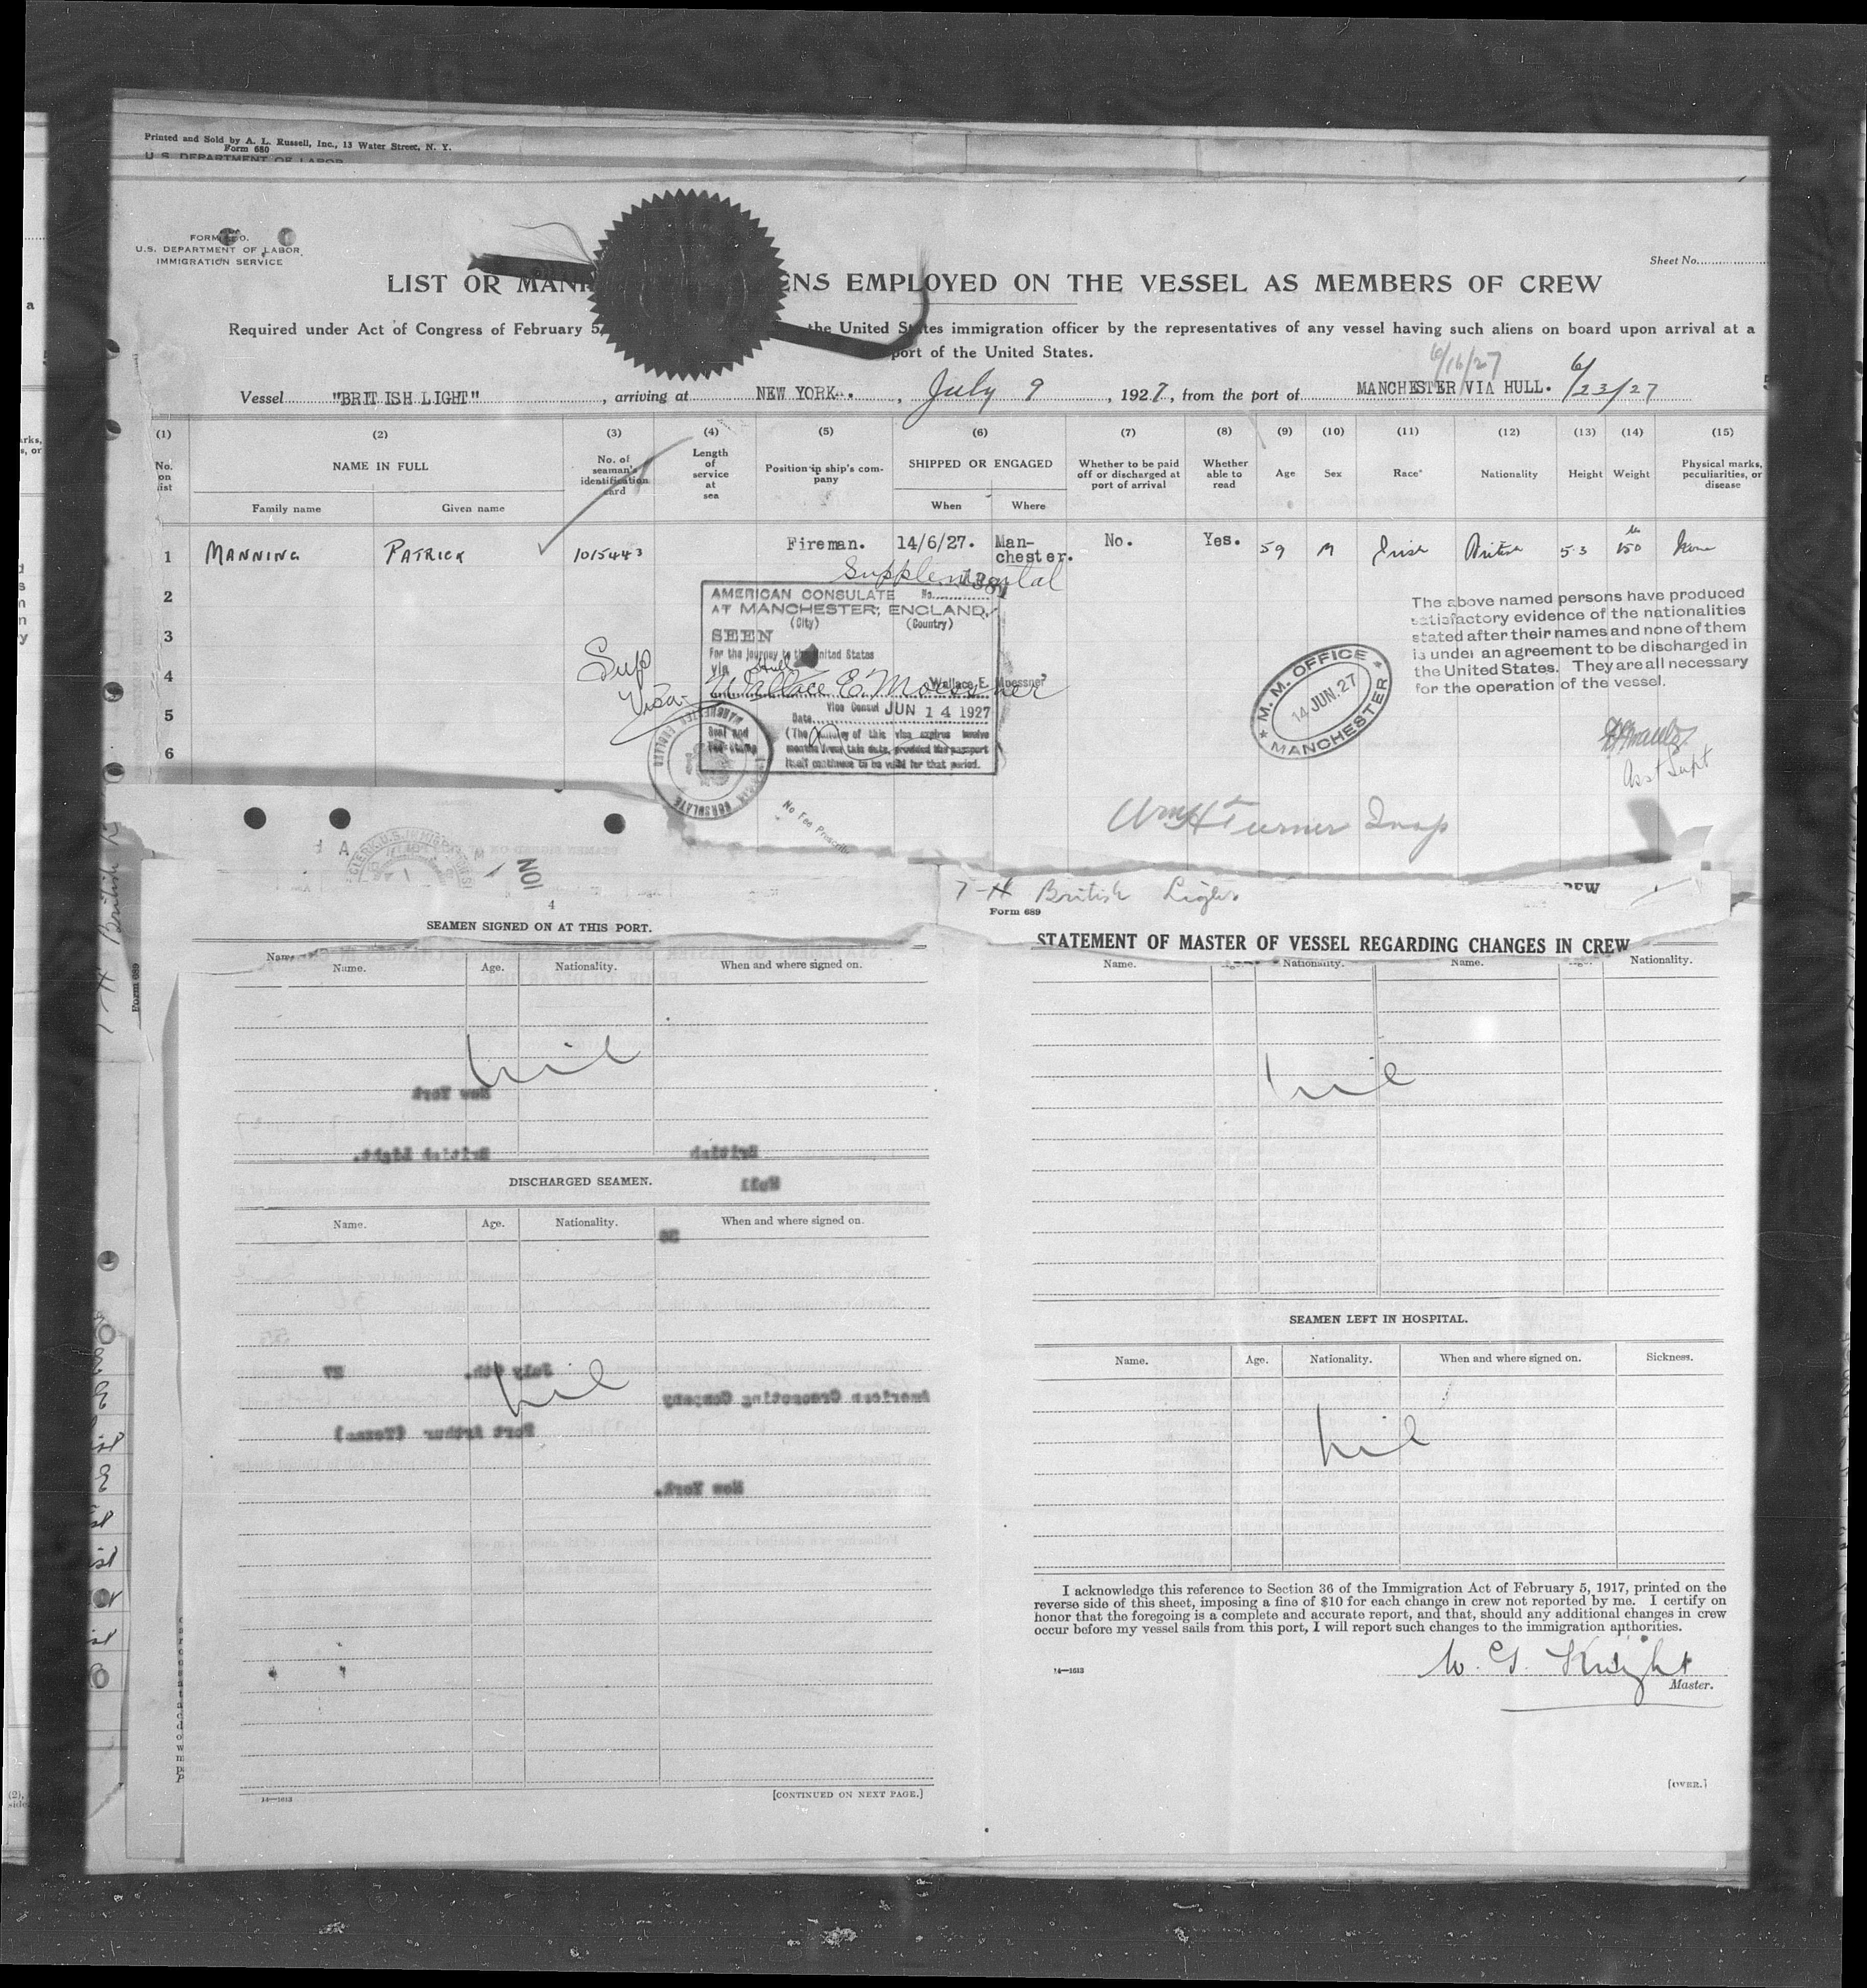 Printed and Sold by A. L. Russell, Inc., 13 Water Street, N. Y.
Form 680
U. S. DEPARTMENT OF LABOR
U.S. DEPARTMENT OF LABOR
IMMIGRATION SERVICE
Sheet No.
LIST OR EMPLOYED ON THE VESSEL AS MEMBERS OF CREW
Required under Act of Congress of February 5 the United States immigration officer by the representatives of any vessel having such aliens on board upon arrival at a
port of the United States.
6/16/27
Vessel "BRITISH LIGHT" , arriving at NEW YORK. , July 9 , 1927, from the port of MANCHESTER VIA HULL. 6/23/27
(1) (2) (3) (4) (5) (6) (7) (8) (9) (10) (11) (12) (13) (14) (15)
No. on list
NAME IN FULL
Family name
Given name
No. of seaman's identification card
Length of service at sea
Position in ship's company
SHIPPED OR ENGAGED
When
Where
Whether to be paid off or discharged at port of arrival
Whether able to read
Age
Sex
Race*
Nationality
Height
Weight
Physical marks, peculiarities, or disease
1 MANNING PATRICK 1015443 Fireman. 14/6/27. Man-chester. No. Yes. 59 M Irish British 5.3 150 None
Supplemental
2
3
4
5
6
AMERICAN CONSULATE No. 1381
AT MANCHESTER, ENGLAND.
(City) (Country)
SEEN
For the journey to the United States
via Hull
Wallace E. Moessner
Wallace E. Moessner
Vice Consul
Date JUN 14 1927
(The validity of this visa expires twelve
months from this date, provided the passport
itself continues to be valid for that period.
Sup
Visa
No Fee Prescribed
M. M. OFFICE
14 JUN. 27
MANCHESTER
The above named persons have produced
satisfactory evidence of the nationalities
stated after their names and none of them
is under an agreement to be discharged in
the United States. They are all necessary
for the operation of the vessel.
Asst Supt
Wm H Turner Insp
T-H British Light
Form 689
4
SEAMEN SIGNED ON AT THIS PORT.
Name. Age. Nationality. When and where signed on.
Nil
New York
British Light. British
Hull
DISCHARGED SEAMEN.
Name. Age. Nationality. When and where signed on.
36
July 9th. 27
Nil
American Creosoting Company
Port Arthur (Texas)
New York.
14—1613
[CONTINUED ON NEXT PAGE.]
STATEMENT OF MASTER OF VESSEL REGARDING CHANGES IN CREW
Name. Nationality. Name. Nationality.
Nil
SEAMEN LEFT IN HOSPITAL.
Name. Age. Nationality. When and where signed on. Sickness.
Nil
I acknowledge this reference to Section 36 of the Immigration Act of February 5, 1917, printed on the
reverse side of this sheet, imposing a fine of $10 for each change in crew not reported by me. I certify on
honor that the foregoing is a complete and accurate report, and that, should any additional changes in crew
occur before my vessel sails from this port, I will report such changes to the immigration authorities.
14—1613
W. G. Knight
Master.
[OVER.]